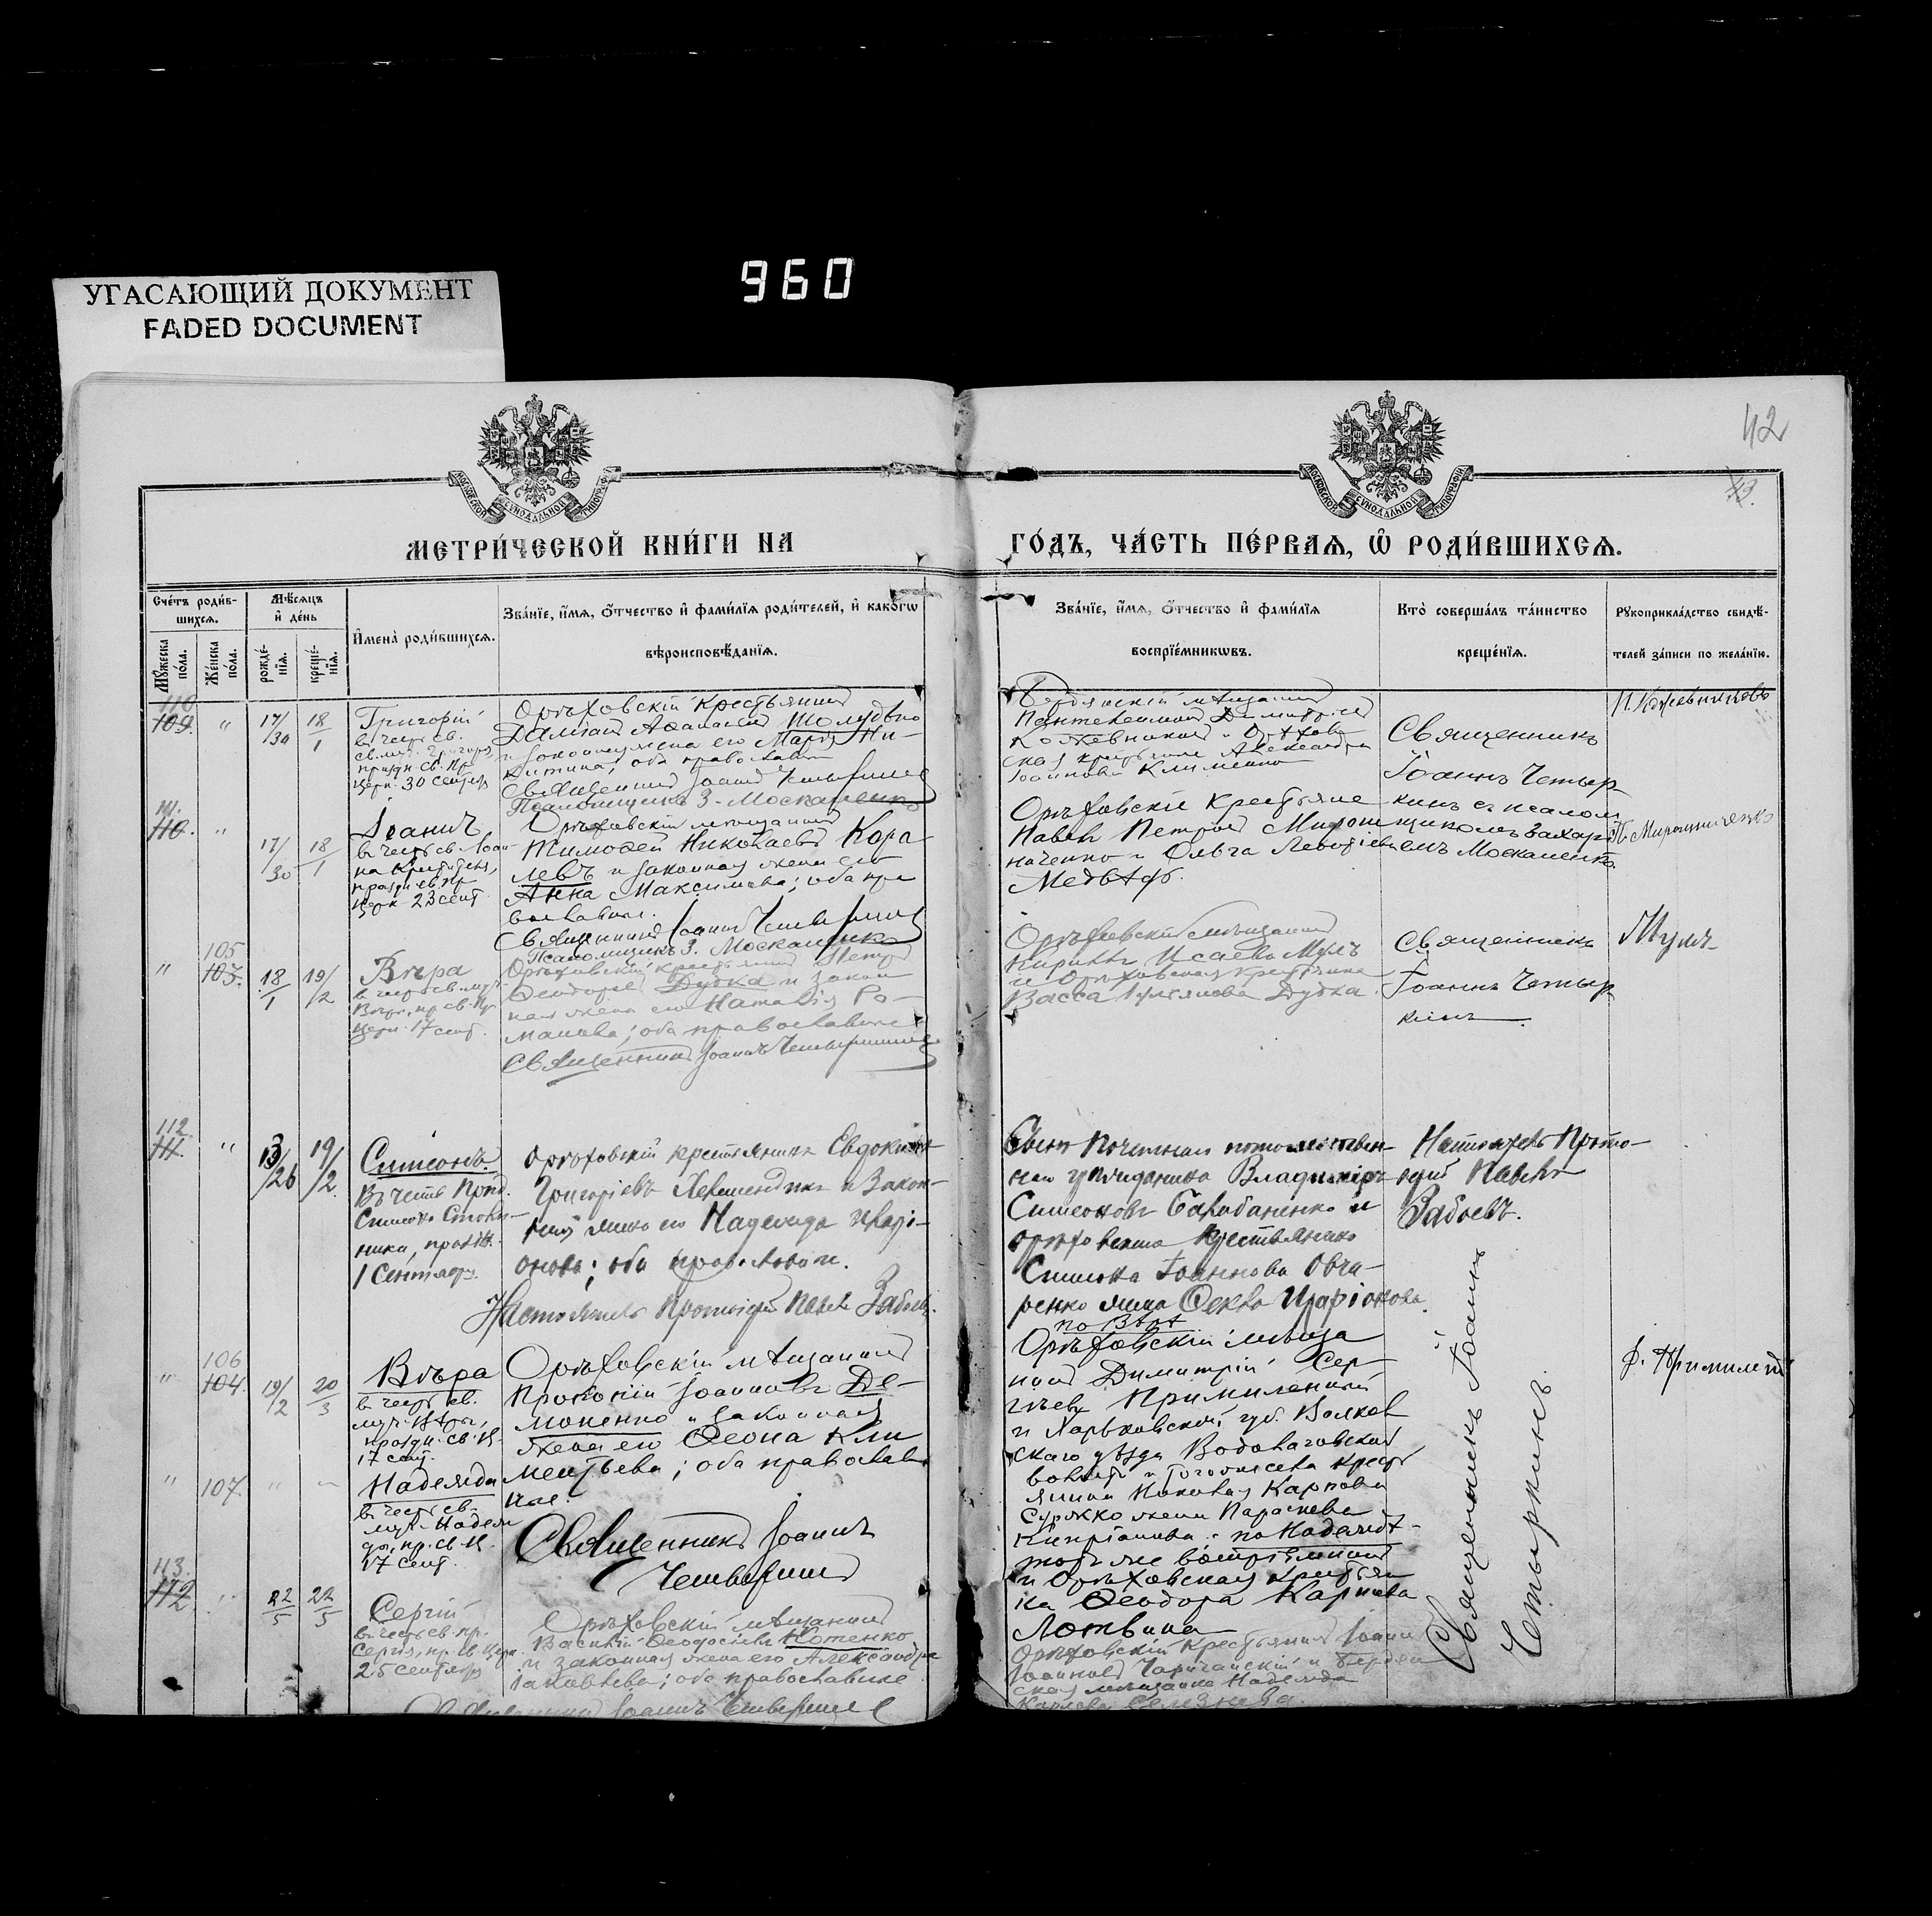 960
УГАСАЮЩИЙ ДОКУМЕНТ
FADED DOCUMENT
42
МЕТРИ́ЧЕСКОЙ КНИ́ГИ НА
ГО́ДЪ, ЧА́СТЬ ПЕ́РВАЯ, Ѿ РОДИ́ВШИХСЯ.
Сче́тъ роди́в-
шихся.
Мѣ́сяцъ
и҆ де́нь
Мꙋ́жеска по́ла.
Же́нска по́ла.
рожде́-
нїя.
креще́-
нїя.
И҆мена̀ роди́вшихся.
Зва́нїе, и҆́мя, ѻ҆́тчество и҆ фами́лїя роди́телей, и҆ како́гѡ
вѣроисповѣ́данїя.
Зва́нїе, и҆́мя, ѻ҆́тчество и҆ фами́лїя
воспрїе́мникѡвъ.
Кто̀ соверша́лъ та́инство
креще́нїя.
Рꙋкоприкла́дство свидѣ́-
телей за́писи по жела́нїю.
110
109. " 17/30 18/1
Григорій
въ честь св.
св. муч. Григорія,
празд. св. Пр.
Церк. 30 сент.
Орѣховскій крестьянинъ
Даміанъ Аѳанасіевъ
и законная жена его Марія Ни-
китина; оба православн.
Священникъ Іоаннъ Четыркинъ
Псаломщикъ З. Москаленко
Бердянскій мѣщанинъ
Пантелеимонъ Димитріевъ
Кожевниковъ и Орѣхов-
ская крестьянка Александра
Іоаннова Клименко
Священникъ
Іоаннъ Четыр-
кинъ съ псалом-
щикомъ Захарі-
емъ Москаленко.
П. Кожевниковъ
111.
110. " 17/30 18/1
Іоаннъ
въ честь св. Іоан-
на Крестителя,
празд. св. Пр.
Церк. 23 сент.
Орѣховскій мѣщанинъ
Тимоѳей Николаевъ Кора-
левъ и законная жена его
Анна Максимова; оба пра-
вославные.
Священникъ Іоаннъ Четыркинъ
Псаломщикъ З. Москаленко
Орѣховскіе крестьяне
Павелъ Петровъ Мирош-
ниченко и Ольга
Медвѣдь.
П. Мирошниченко
105
" 103. 18/1 19/2
Вѣра
въ честь св. муч.
Вѣры, пр. св. Пр.
Церк. 17 сент.
Орѣховскій крестьянинъ Петръ
Ѳеодоровъ Дудка и закон-
ная жена его Наталія Ро-
манова; оба православные
Священникъ Іоаннъ Четыркинъ
Орѣховскій мѣщанинъ
Кириллъ Исаевъ Мулъ
и Орѣховская крестьянка
Васса Дудка.
Священникъ
Іоаннъ Четыр-
кинъ.
Мулъ
112.
111. " 13/26 19/2
Симеонъ.
Въ честь Прпд.
Симеона Столп-
ника, празд.
1 Сентября.
Орѣховскій крестьянинъ Евдокимъ
Григоріевъ и закон-
ная жена его Надежда Иларі-
онова; оба православн.
Настоятель Протоіерей Павелъ Забаевъ.
Сынъ Почетнаго потомствен-
наго гражданина Владиміръ
Симеоновъ Балабаненко и
орѣховскаго крестьянина
Симеона Іоаннова Овча-
ренко жена Ѳекла Иларіонова.
Настоятель Прото-
іерей Павелъ
Забаевъ.
106
" 104. 19/2 20/3
Вѣра
въ честь св.
муч. Вѣры,
празд. св. Ц.
17 сент.
Орѣховскій мѣщанинъ
Прокопій Іоанновъ Де-
моненко и законная
жена его Ѳеона Кли-
ментьева; оба православ-
ные.
Священникъ Іоаннъ
Четыркинъ
по Вѣрѣ
Орѣховскій мѣща-
нинъ Димитрій Сер-
гѣевъ Примиленный
и Харьковской губ. Валков-
скаго уѣзда Водолаговской
волости кресть-
янина Николая Карпова
Суржко жена Параскева
Кипріанова: по Надеждѣ
тотъ же воспріемникъ
и Орѣховская крестьян-
ка Ѳеодора Карпова
Лотвина
Священникъ Іоаннъ
Четыркинъ.
" 107. " "
Надежда
въ честь св.
муч. Надеж-
ды, пр. св. Ц.
17 сент.
113.
112 " 22/5 22/5
Сергій
въ честь св. пр.
Сергія, пр. св. Церк.
25 сентября
Орѣховскій мѣщанинъ
Василій Ѳеодосіевъ Котенко
и законная жена его Александра
Іаковлева; оба православные
Священникъ Іоаннъ Четыркинъ
Орѣховскій крестьянинъ Іоаннъ
Іоанновъ Чаричанскій и Бердян-
ская мѣщанка Надежда
Карлова Селезнева.